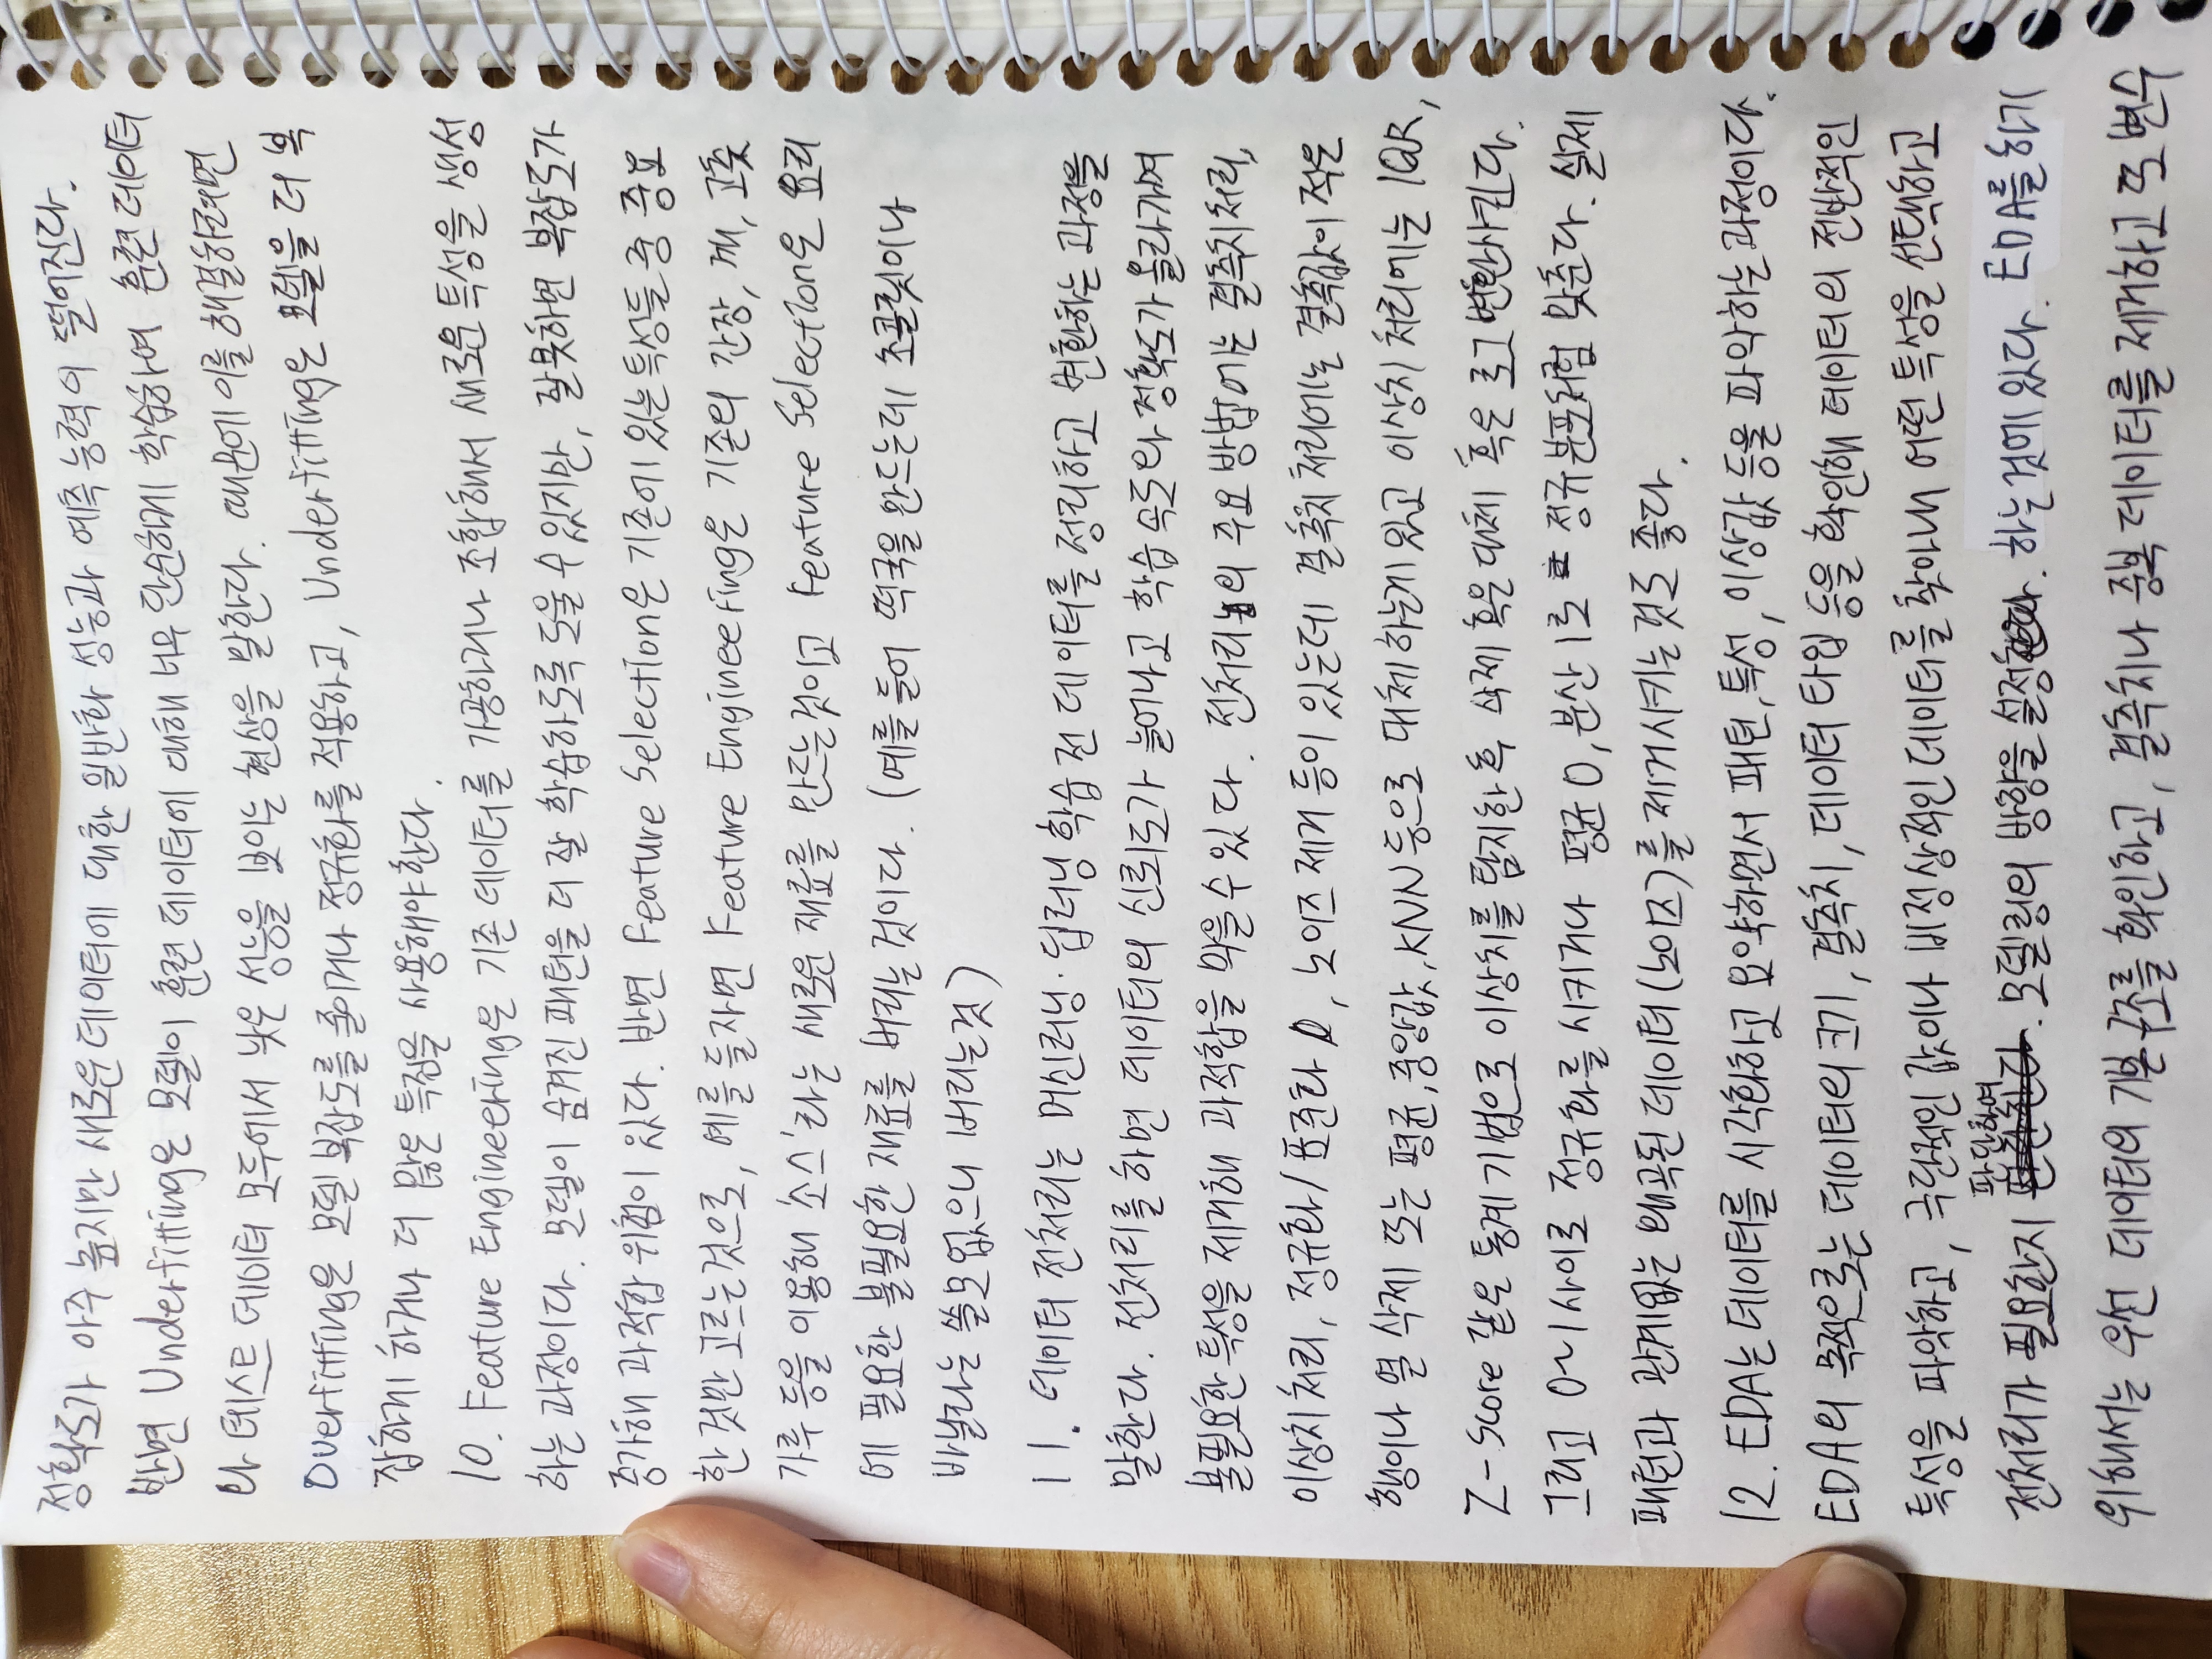 정확도가 아주 높지만 새로운 데이터에 대한 일반화 성능과 예측 능력이 떨어진다.
반면 Underfitting은 모델이 훈련 데이터에 대해 너무 단순하게 학습하여 훈련 데이터
와 테스트 데이터 모두에서 낮은 성능을 보이는 현상을 말한다. 때문에 이를 해결하려면
Overfitting은 모델 복잡도를 줄이거나 정규화를 적용하고, Underfitting은 모델을 더 복
잡하게 하거나 더 많은 특징을 사용해야한다.
10. Feature Engineering은 기존 데이터를 가공하거나 조합해서 새로운 특성을 생성
하는 과정이다. 모델이 숨겨진 패턴을 더 잘 학습하도록 도울 수 있지만, 잘못하면 복잡도가
증가해 과적합 위험이 있다. 반면 Feature Selection은 기존에 있는 특성들 중 중요
한 것만 고르는것으로, 예를 들자면 Feature Engineering은 기존의 간장, 깨, 고춧
가루 등을 이용해 '소스'라는 새로운 재료를 만드는것이고 Feature Selection은 요리
에 필요한 불필요한 재료를 버리는 것이다. (예를 들어 떡국을 만드는데 초콜릿이나
바닐라는 쓸모없으니 버리는것)
11. 데이터 전처리는 머신러닝·딥러닝 학습 전 데이터를 정리하고 변환하는 과정을
말한다. 전처리를 하면 데이터의 신뢰도가 늘어나고 학습 속도와 정확도가 올라가며
불필요한 특성을 제거해 과적합을 막을 수 있다. 전처리의 주요 방법에는 결측치처리,
이상치 처리, 정규화/표준화, 노이즈 제거 등이 있는데 결측치 처리에는 결측값이 적은
행이나 열 삭제 또는 평균, 중앙값, KNN 등으로 대체하는게 있고 이상치 처리에는 IQR,
Z-Score 같은 통계 기법으로 이상치를 탐지한 후 삭제 혹은 대체 혹은 로그 변환시킨다.
그리고 0~1 사이로 정규화를 시키거나 평균 0, 분산 1로 정규분포처럼 맞춘다. 실제
패턴과 관계없는 왜곡된 데이터(노이즈)를 제거시키는 것도 좋다.
12. EDA는 데이터를 시각화하고 요약하면서 패턴, 특성, 이상값 등을 파악하는 과정이다.
EDA의 목적으로는 데이터의 크기, 결측치, 데이터 타입 등을 확인해 데이터의 전반적인
특성을 파악하고, 극단적인 값이나 비정상적인 데이터를 찾아내 어떤 특성을 선택하고
전처리가 필요한지 판단하여 모델링의 방향을 설정 하는 것에 있다. EDA를 하기
위해서는 우선 데이터의 기본 구조를 확인하고, 결측치나 중복 데이터를 제거하고 또 변수